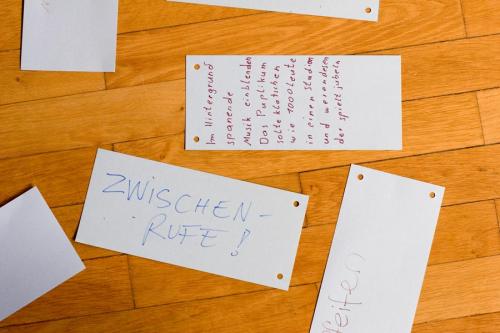 Im Hintergrund
spanende
Musik einblenden
Das Puplikum
solte klatschen
wie 1000 Leute
in einen Stadion
und werendesen
der spielt jubeln
ZWISCHEN-
RUFE!
feifen